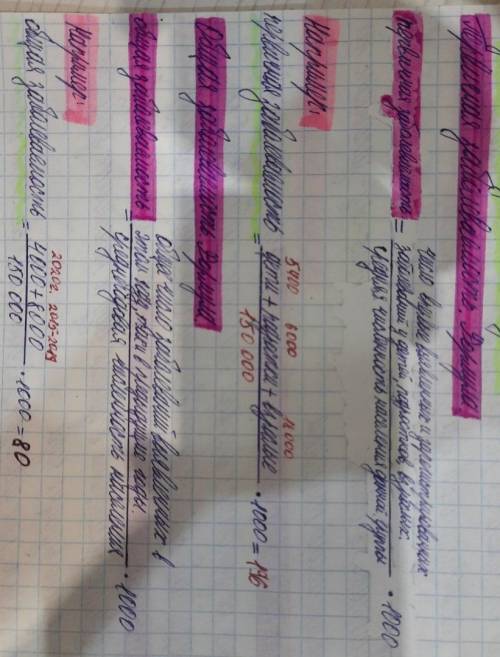 Первичная заболеваемость. Формула
Первичная заболеваемость = число вновь выявленных и зарегистрированных
заболеваний у детей, подростков, взрослых
средняя численность населения данной группы · 1000
Например:
5400 6000 12000
первичная заболеваемость = дети + подростки + взрослые
150 000 · 1000 = 156
Общая заболеваемость. Формула
общая заболеваемость = общее число заболеваний выявленных в
этом году и в предыдущие годы
среднегодовая численность населения · 1000
Например:
2020г. 2015-2019
общая заболеваемость = 4000 + 6000
150 000 · 1000 = 80